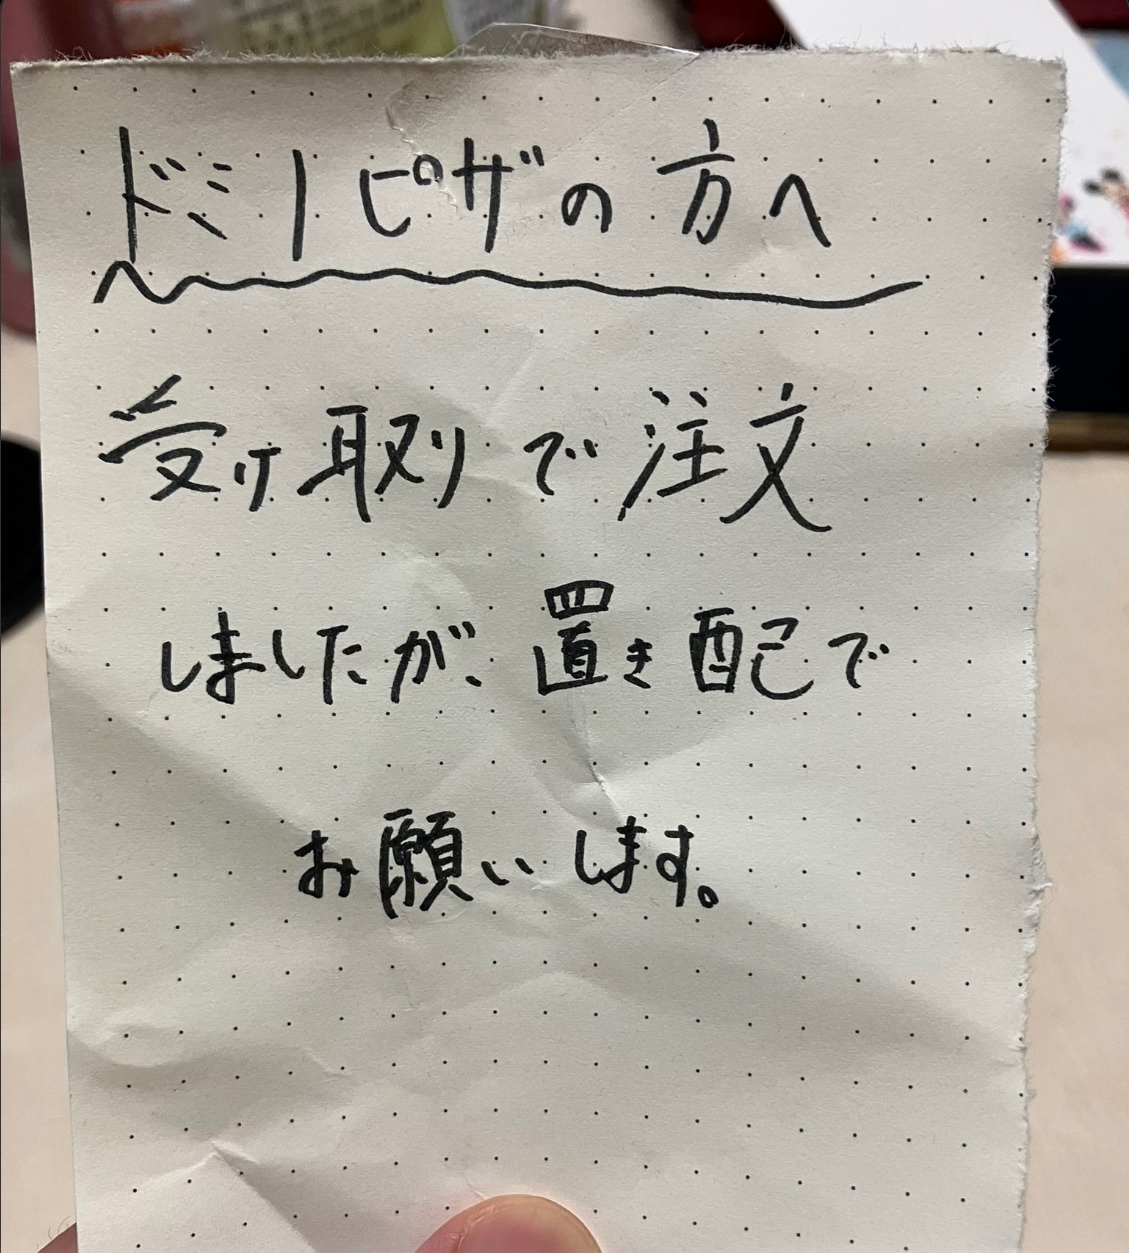 ドミノピザの方へ
受け取りで注文
しましたが、置き配で
お願いします。